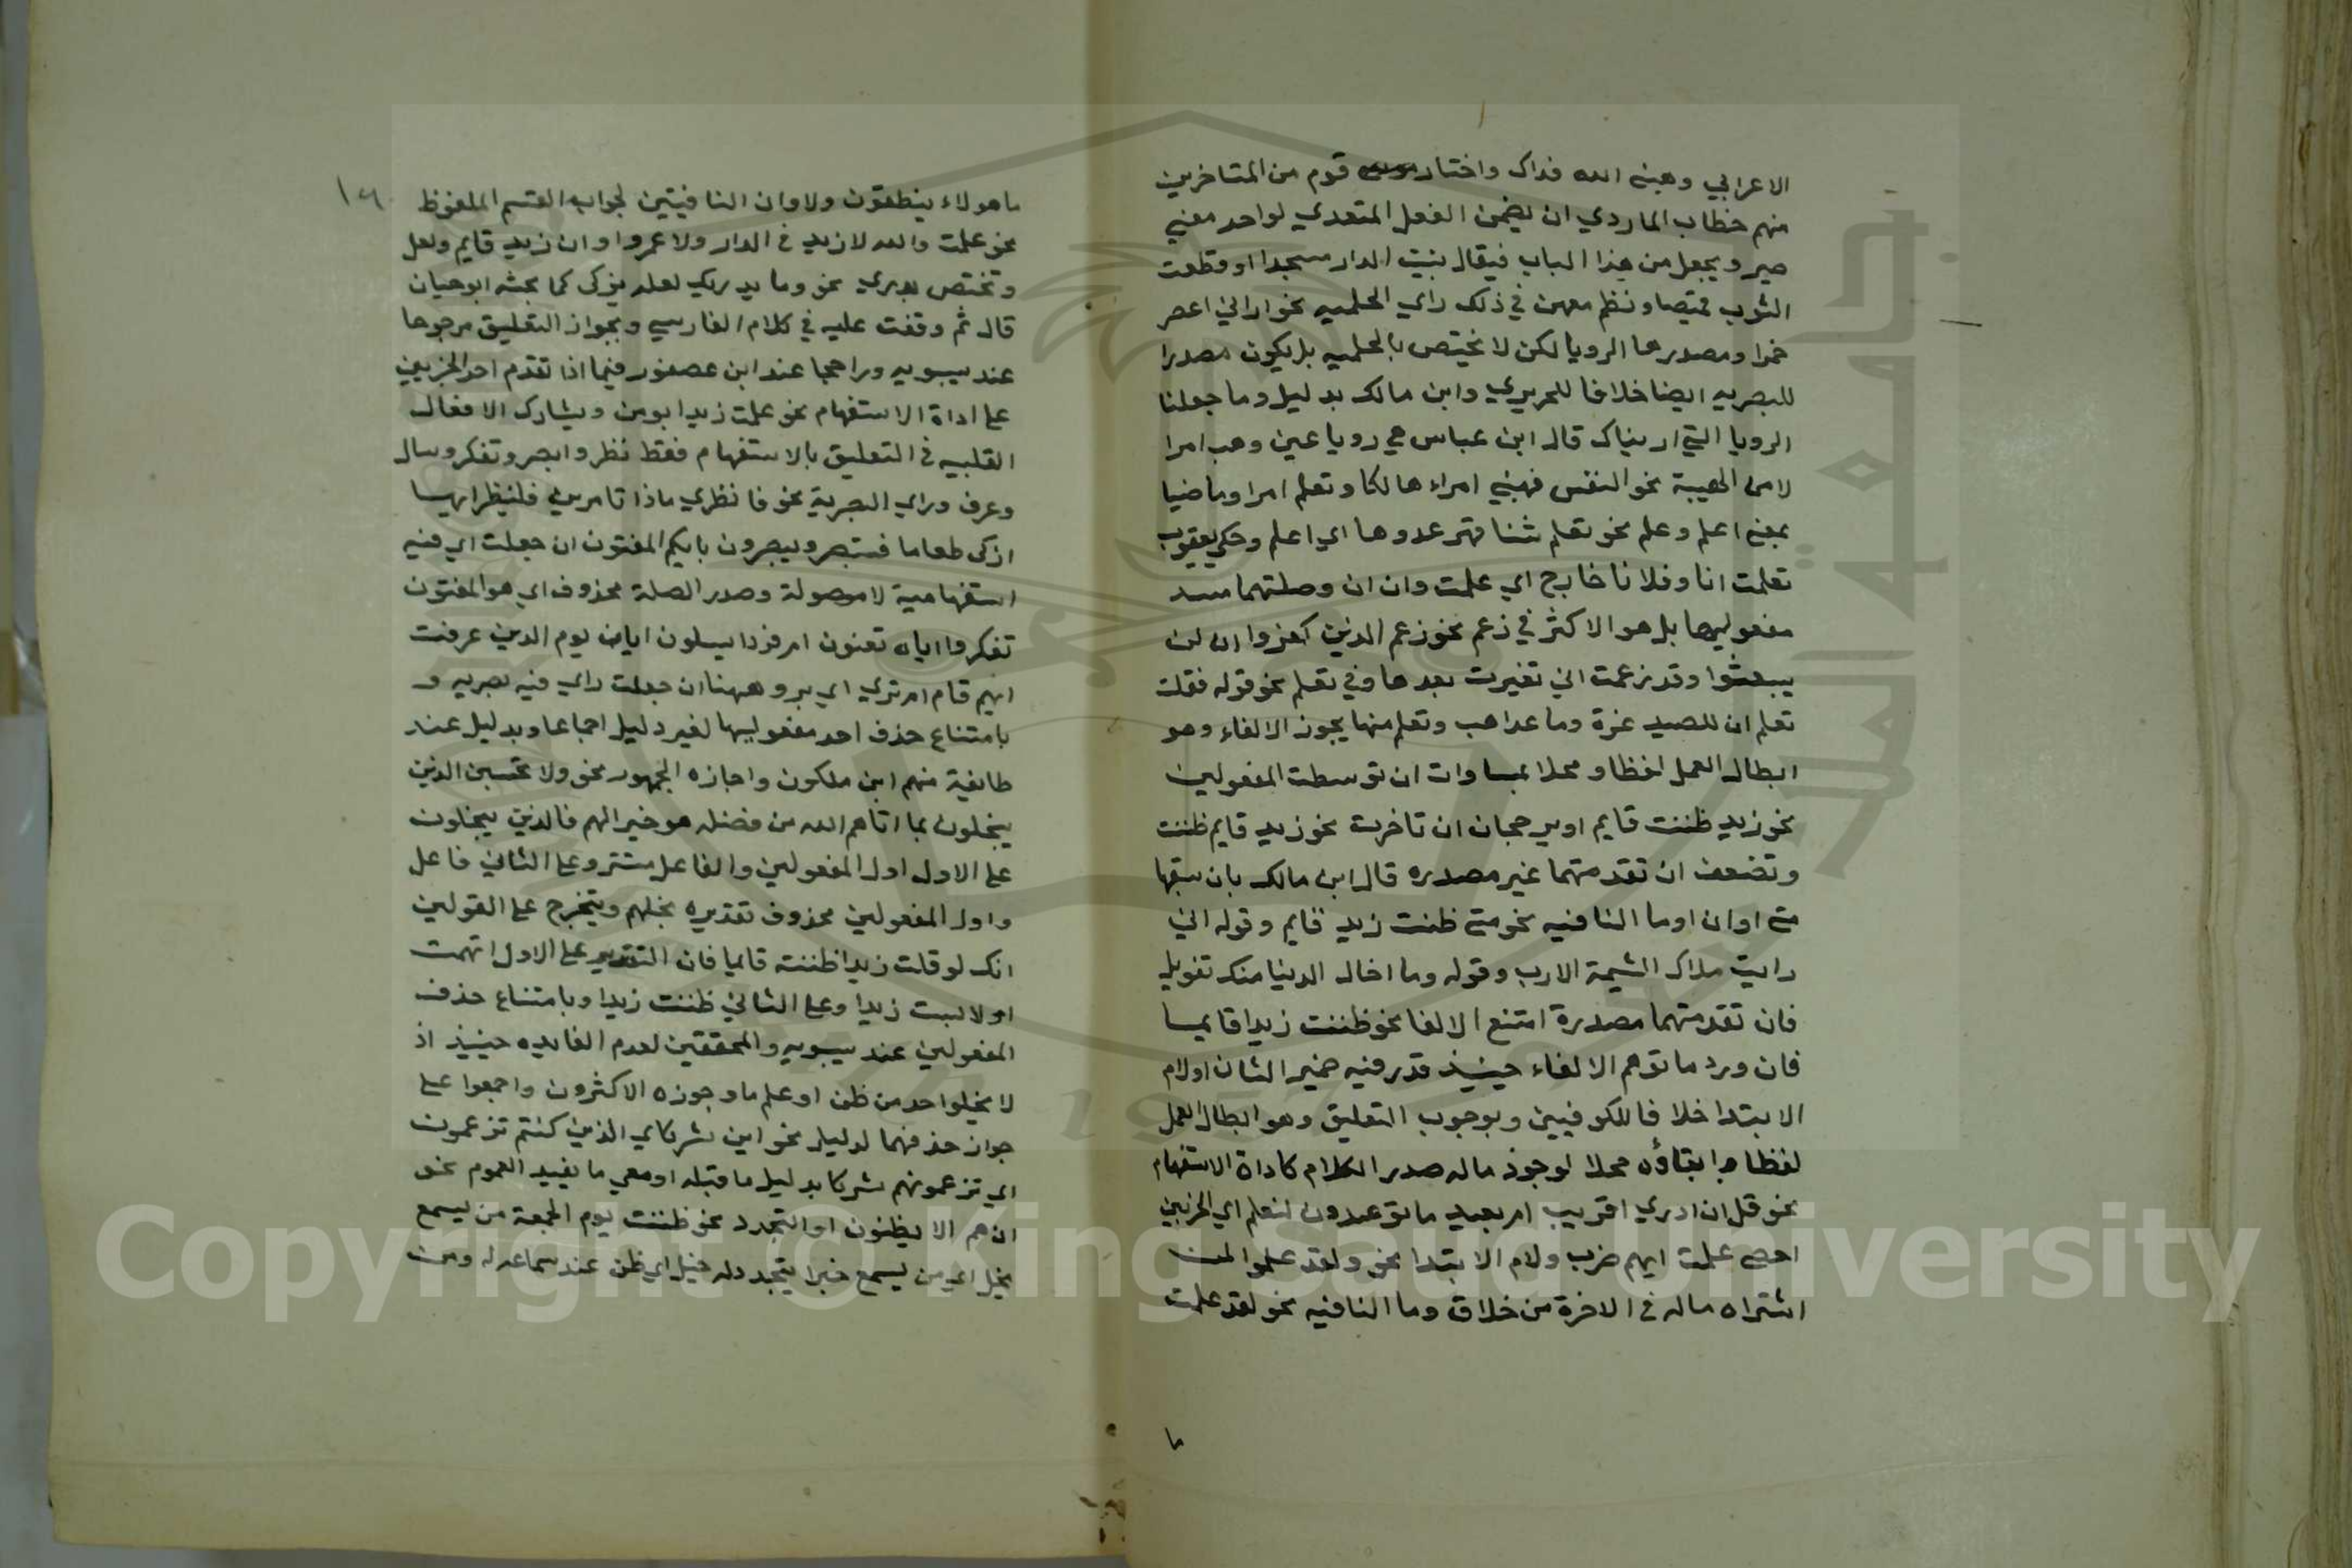 الاعرابي وهبني الله فداك واختار قوم من المتاخرين
منهم خطاب الماردي ان يضمن الفعل المتعدي لواحد معني
صير ويجعل من هذا الباب فيقال بنيت الدار مسجدا او قطعت
الثوب قميصا ونظم معهن في ذلك راي الحلميه نحو اراني اعصر
خمرا ومصدرها الرويا لكن لا تختص بالحلميه بل يكون مصدرا
للبصريه ايضا خلافا للحريري وابن مالك بدليل وما جعلنا
الرويا التي اريناك قال ابن عباس هي رويا عين وهب امرا
لا من الهيبة نحو النفس فهبني امراء هالكا وتعلم امرا وماضيا
بمعني اعلم وعلم نحو تعلم شفا قهر عدوها اي اعلم وحكي يعقوب
تعلمت انا وفلانا خارج اي علمت وان ان وصلتهما مسد
مفعوليها بل هو الاكثر في زعم نحو زعم الذين كفروا ان لن
يبعثوا وقد زعمت اني تغيرت بعدها وفي تعلم نحو قوله فقلت
تعلم ان للصيد غرة وما عدا هب وتعلم منها يجوز الالغاء وهو
ابطال العمل لفظا ومحلا بمساوات ان توسطت المفعولين
نحو زيد ظننت قايم او برجحان ان تاخرت نحو زيد قايم ظننت
وتضعف ان تقدمتهما غير مصدره قال ابن مالك بان سبقها
متي او ان او ما النافيه نحو متي ظننت زيد قايم وقوله اني
رايت ملاك الشيمة الارب وقوله وما اخال الدينا منك تنويل
فان تقدمتهما مصدرة امتنع الالغا نحو ظننت زيدا قايما
فان ورد ما توهم الالغاء حينيذ قدر فيه ضمير الشان او لام
الابتدا خلافا للكوفيين وبوجوب التعليق وهو ابطال العمل
لفظا وابقاؤه محلا لوجود ماله صدر الكلام كاداة الاستفهام
نحو قل ان ادري اقريب ام بعيد ما توعدون لنعلم اي الحزبين
احصي علمت ايهم ضرب ولام الابتدا نحو ولقد علموا لمن
اشتراه ماله في الاخرة من خلاق وما النافيه نحو لقد علمت
ما
١٦
ما هولاء ينطقون ولا وان النافيتين لجواب القسم الملفوظ
نحو علمت والله لا زيد في الدار ولا عمرو او ان زيد قايم ولعل
وتختص بدري نحو وما يدريك لعله يزكي كما بحثه ابوحيان
قال ثم وقفت عليه في كلام الفارسي وبجواز التعليق مرجوحا
عند سيبويه وراجحا عند ابن عصفور فيما اذا تقدم احد الجزيين
علي اداة الاستفهام نحو علمت زيدا ابو من ويشارك الافعال
القلبيه في التعليق بالاستفهام فقط نظر وابصر وتفكر وسال
وعرف وراي البصرية نحو فانظري ماذا تامرين فلينظر ايها
ازكي طعاما فستبصر ويبصرون بايكم المفتون ان جعلت اي فيه
استفهامية لا موصولة وصدر الصلة محذوف اي هو المفتون
تفكر يسلون ايان يوم الدين عرفت
ايهم قام ام تري اي برو ههنا ان جعلت راي فيه بصريه و
بامتناع حذف احد مفعوليها لغير دليل اجماعا وبدليل عند
طايفة منهم ابن ملكون واجازه الجمهور نحو ولا تحسبن الذين
يبخلون بما اتاهم الله من فضله هو خيرا لهم فالذين يبخلون
علي الاول اول المفعولين والفاعل مستتر وعلي الثاني فاعل
واول المفعولين محذوف تقديره بخلهم ويتخرج علي القولين
انك لو قلت زيدا ظننته قايما فان التقدير علي الاول اتهمت
او لابست زيدا وعلي الثاني ظننت زيدا وبامتناع حذف
المفعولين عند سيبويه والمحققين لعدم الفايده حينيذ اذ
لا يخلوا احد من ظن او علم ما وجوزه الاكثرون واجمعوا علي
جواز حذفهما لدليل نحو اين شركاي الذين كنتم تزعمون
اي تزعمونهم شركا بدليل ما قبله او معي ما يفيد العموم نحو
ان هم الا يظنون او التجدد نحو ظننت يوم الجمعة من يسمع
يخل اي من يسمع خبرا يتجدد له خيل اي ظن عند سماعه له ومن
Copyright © King Saud University